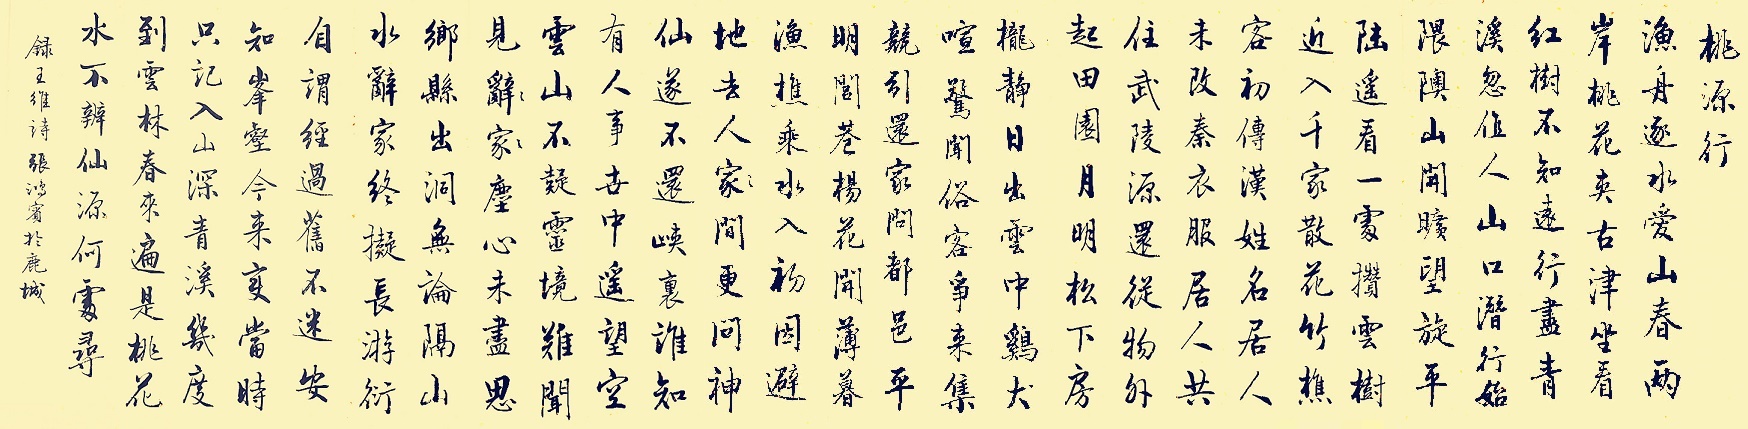 桃源行
漁舟逐水愛山春兩
岸桃花夾古津坐看
紅樹不知遠行盡青
溪忽值人山口潛行始
隈隩山開曠望旋平
陸遥看一處攢雲樹
近入千家散花竹樵
客初傳漢姓名居人
未改秦衣服居人共
住武陵源還從物外
起田園月明松下房
櫳静日出雲中鷄犬
喧驚聞俗客爭来集
競引還家問都邑平
明閭巷楊花開薄暮
漁樵乘水入初因避
地去人家間更问神
仙遂不還峽裏誰知
有人事世中遥望空
雲山不疑靈境難聞
見辭家塵心未盡思
鄉縣出洞無論隔山
水辭家終擬長游衍
自謂經過舊不迷安
知峯壑今来变當時
只记入山深青溪幾度
到雲林春來遍是桃花
水不辨仙源何處尋
録王維詩張鴻賓於鹿城